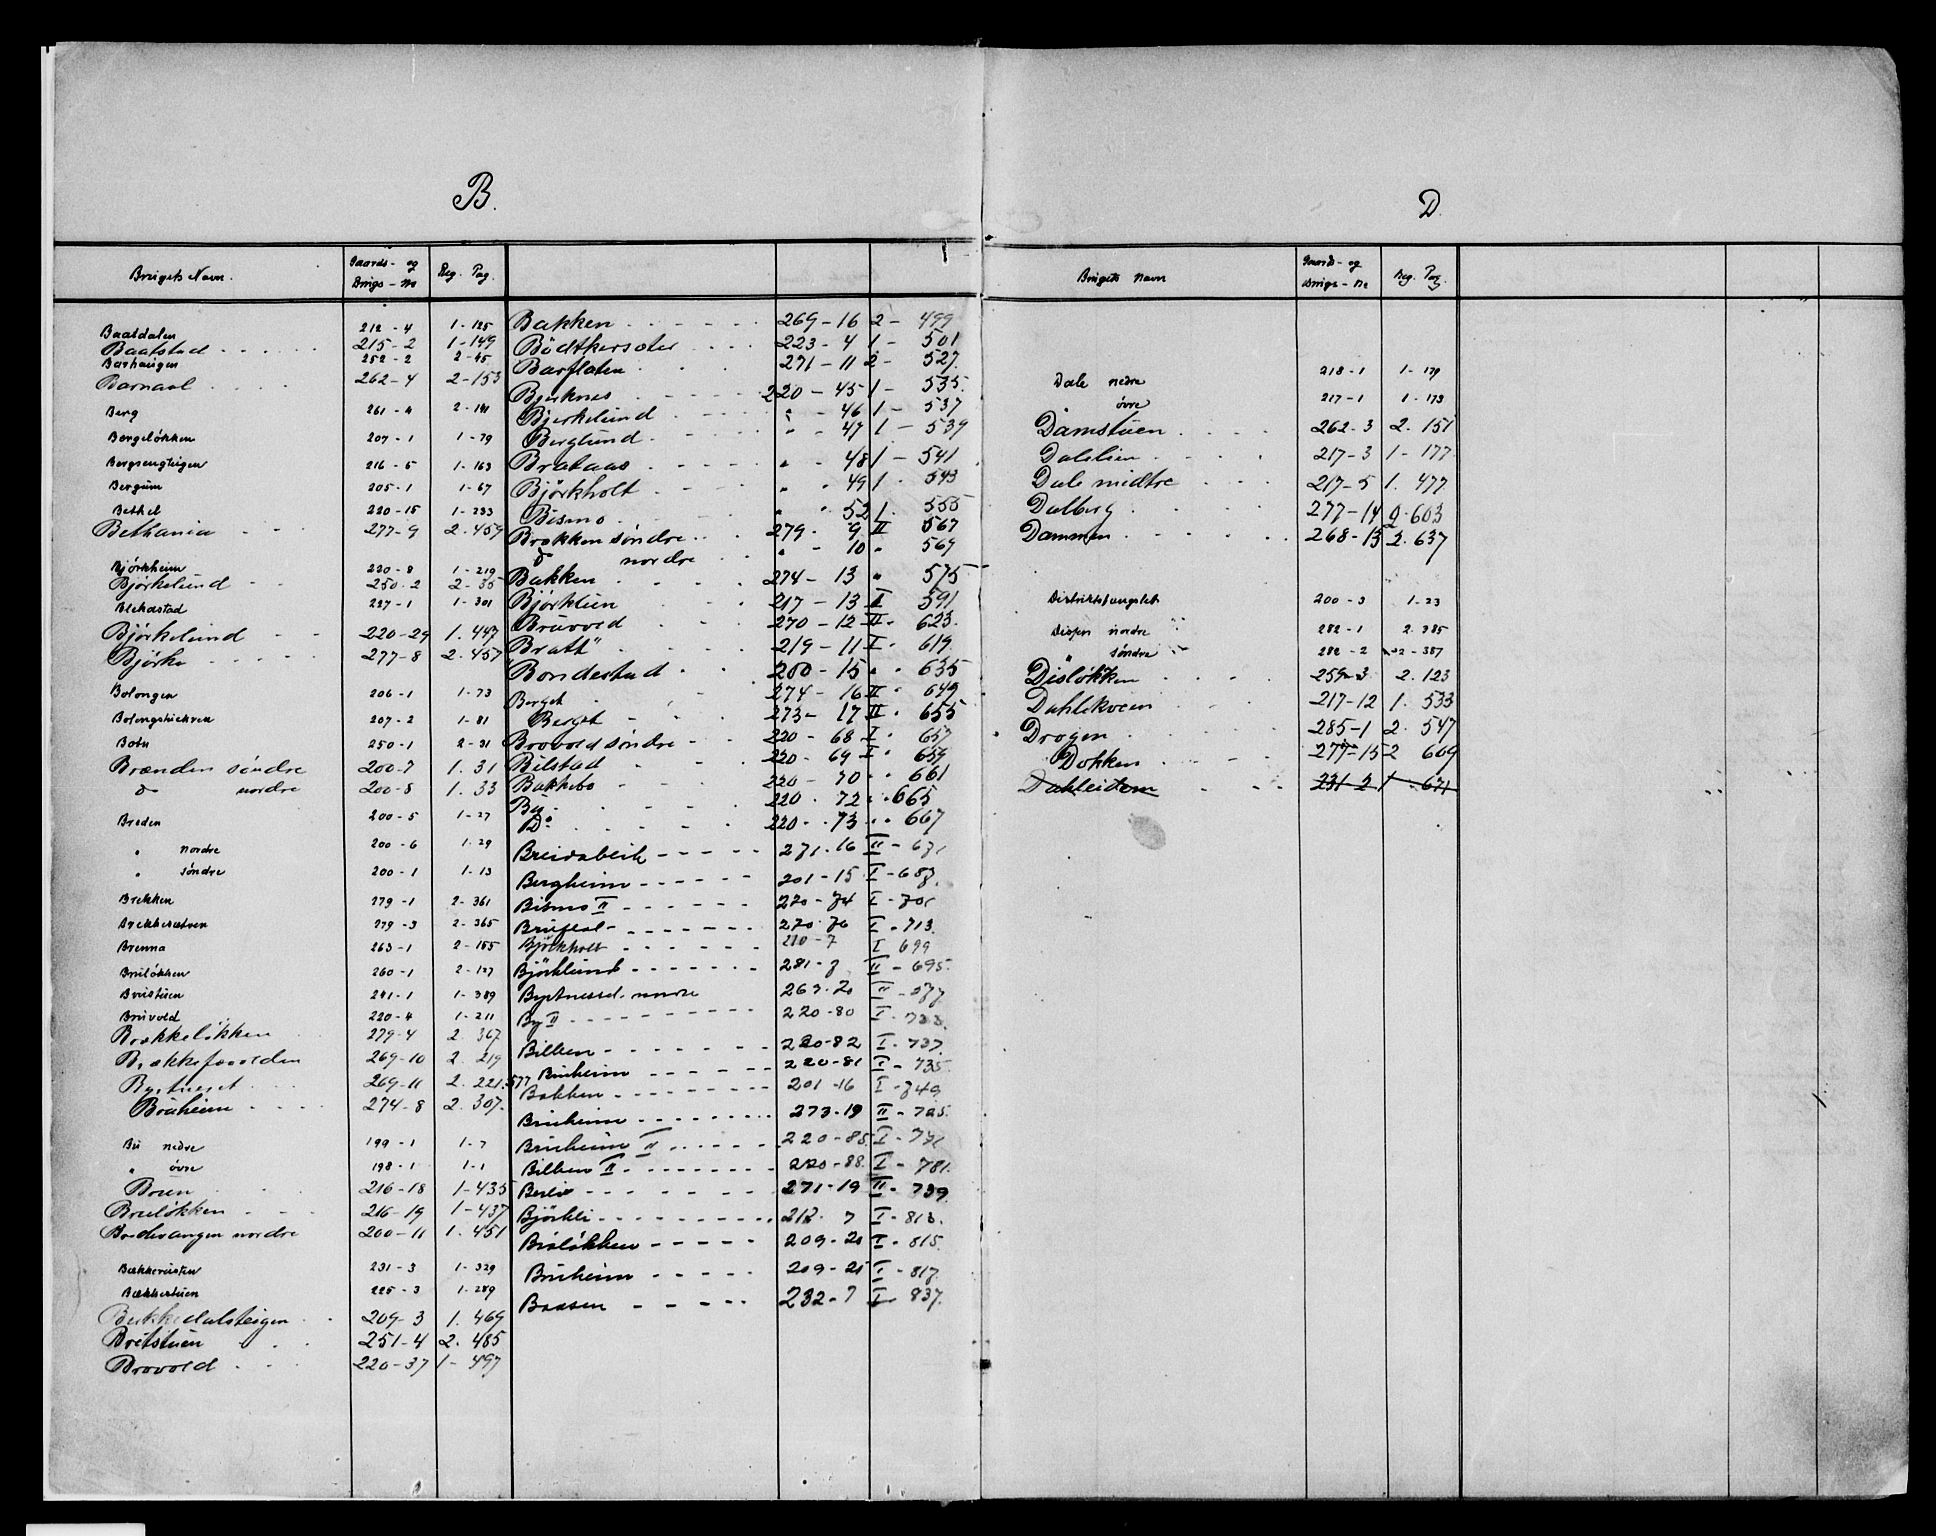 B.
Brugets Navn. Gaards- og Brugs-No Reg. Pag.
Baatdalen 212-4 1-125
Baatstad 215-2 1-149
Barhaugen 252-2 2-45
Barnaal 262-4 2-153
Berg 261-4 2-141
Bergeløkken 207-1 1-79
Bergsengteigen 216-5 1-163
Bergum 205-1 1-67
Bethel 220-15 1-233
Bethania 277-9 2-459
Bjørkheim 220-8 1-219
Bjørkelund 250-2 2-35
Blekastad 227-1 1-301
Bjørkelund 220-29 1. 447
Bjørke 277-8 2. 457
Bolongen 206-1 1-73
Bolongskieken 207-2 1-81
Botn 250-1 2-31
Brænden søndre 200-7 1. 31
do nordre 200-8 1. 33
Breden 200-5 1-27
" nordre 200-6 1-29
" søndre 200-1 1-13
Brekken 279-1 2-361
Brekkesætren 279-3 2-365
Brenna 263-1 2-155
Bruløkken 260-1 2-127
Brustuen 241-1 1-389
Bruvold 220-4 1-211
Brækkeløkken 279-4 2. 367
Brækkefarolden 269-10 2. 219
Brytneset 269-11 2. 221.577
Bruheim 274-8 2. 307.
Bu nedre 199-1 1-7
" øvre 198-1 1-1
Boren 216-18 1-435
Bruløkken 216-19 1-437
Bødevangen nordre 200-11 1. 451
Bækkerusten 231-3 1-329
Bækkestuen 225-3 1-289
Bækkedalsteigen 209-3 1. 469
Britstuen 251-4 2. 485
Brovold 220-37 1-497
Bakken 269-16 2-499
Bødtkersæter 223-4 1-501
Barflaten 271-11 2-527.
Bjerknes 220-45 1-535.
Bjerkelund " -46 1-537
Berglund " -47 1-539
Brataas " -48 1-541
Bjørkholt " 49 1. 543
Bismo " 52 1. 555
Brækken søndre 279. 9 II 567
do nordre " -10 " 569
Bakken 274-13 " 575
Bjørktun 217-13 I 591
Bruvold 270-12 II. 623.
Bratt" 219-11 I. 619.
Bondestad 200-15 " . 635
Berget 274-16 II. 649
Berget 273-17 II. 655
Brovold søndre 220-68 I. 657
Bilstad 220. 69 I. 659
Bakkebo 220-70 " . 661
By 220. 72 . . 665
Do 220. . 73 . . 667
Breidablik 271.16 II-671
Bergheim 201-15 I-687.
Bismo II 220-74 I-701
Brufeal 220.76 I-713.
Bjørkholt 220-7 I 699
Bjørklund 281-7 II-695.
Brytnesset nordre 263.20 II-577
By II 220-80 I-733.
Bilben 220-82 I-737.
Bruheim 220-81 I-735.
Bakken 201-16 I-749
Bruheim 273-19 II-725.
Bruheim II 220-85 I-771
Bilben II 220-88. I-781.
Berlie 271-19 II-739.
Bjørkli 212. 7 I-813.
Brøløkken 209-20 I-815.
Bruheim 209-21 I-817.
Braasen 232-7 I-837.
D.
Brugets Navn Gaards- og Brugs-No Reg. Pag.
Dale nedre 218-1 1-179
øvre 217-1 1-173
Damstuen 262-3 2. 151
Dalelien 217-3 1-177.
Dale midtre 217-5 1. 477
Dalberg 277-14 2. 603
Dammen 268-13 2. 637
Distriktsfængslet 200-3 1-23
Disjen nordre 282-1 2. 385
" søndre 282-2 2-387
Disløkken 259-3 2. 123
Dahlekveen 217-12 1. 533
Drogen 285-1 2. 547
Dokken 277-15 2 609
Dahleidem 231-2 1-671